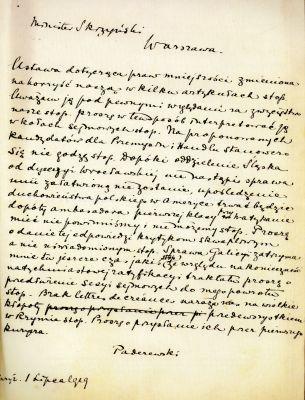 Minister Skrzyński
Warszawa.
Ustawa dotycząca praw mniejszości zmieniona
na korzyść naszą w kilku artykułach stop.
Uważam ją pod pewnymi względami za zwycięstwo
nasze stop. proszę w ten sposób interpretować ją
w kołach sejmowych stop. Na proponowanych
kandydatów dla Przemysłu i Handlu stanowczo
się nie godzę stop. Dopóki oddzielenie Śląska
od dyecezyi wrocławskiej nie nastąpi sprawa
zostanie, upośledzenie
duchowieństwa polskiego w Ameryce trwać będzie
dopóty ambasadora pierwszej klasy przy Watykanie
mieć nie powinniśmy i nie możemy stop. Proszę
o danie tej odpowiedzi krytykom skwapliwym
a nie uświadomionym stop. Sprawa Galicyi zatrzyma
mnie tu jeszcze czas jakiś stop ze względu na konieczność
natychmiastowej ratyfikacyi traktatu proszę o
przedłużenie sesyi sejmowych do mego powrotu
stop. Brak lettres de créance naraża nas na wielkie
kłopoty przedewszystkiem
w Rzymie stop. Proszę o przysłanie ich przez pierwszego
kuryera
Paderewski
1 Lipca 1919